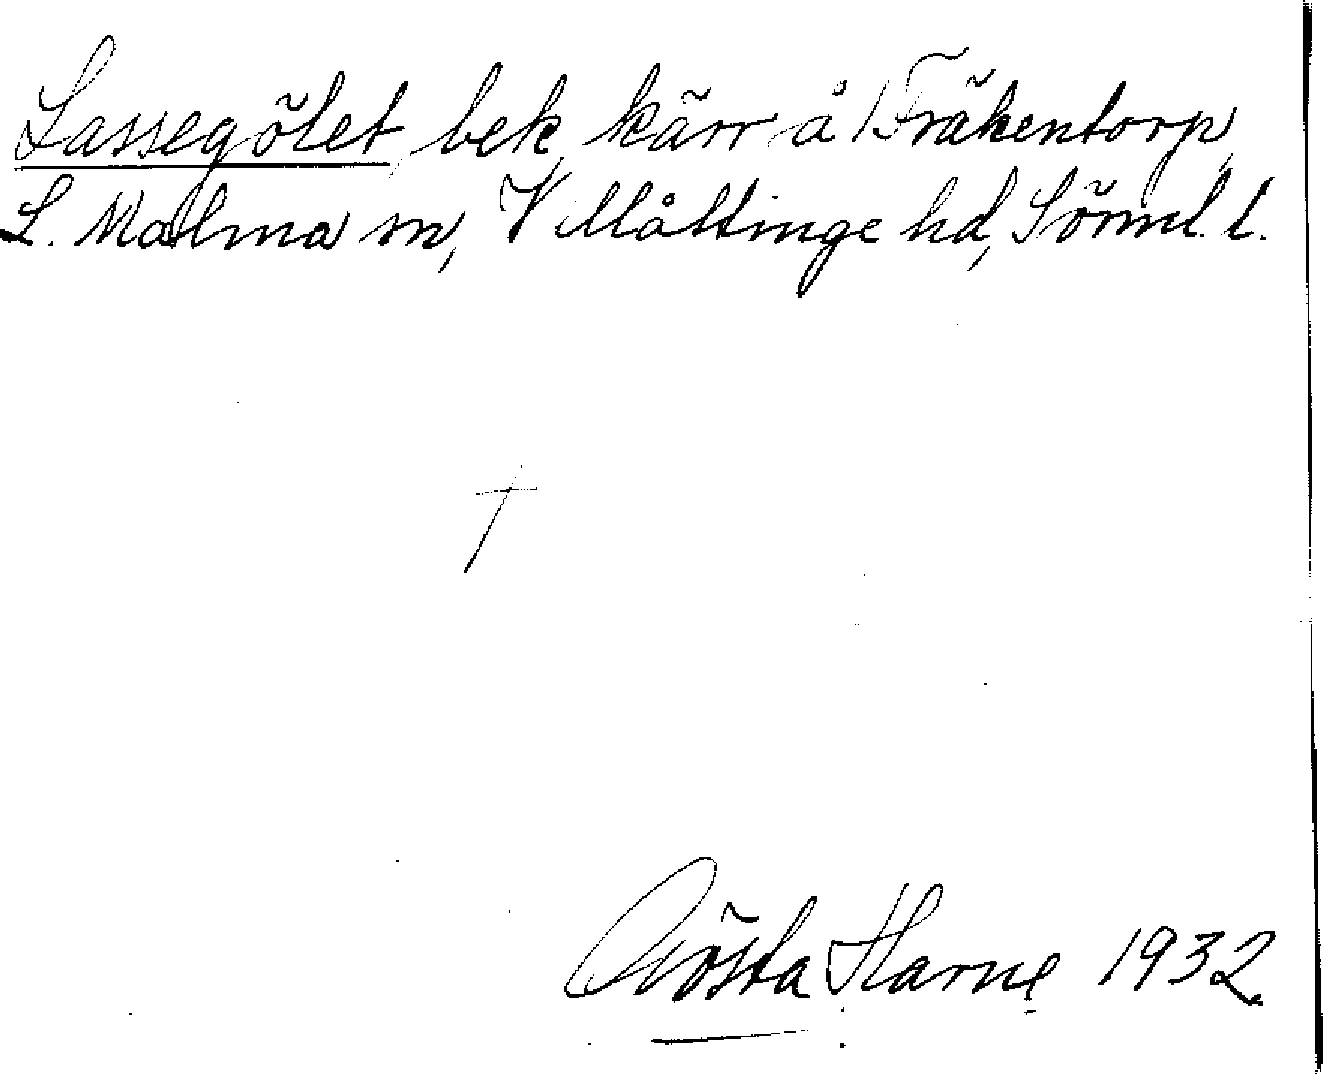 Lassegölet, bek. kärr å 1 Fräkentorp,
L. Malma sn, Villåttinge hd, Sörml. l.
†
Gösta Harne 1932.